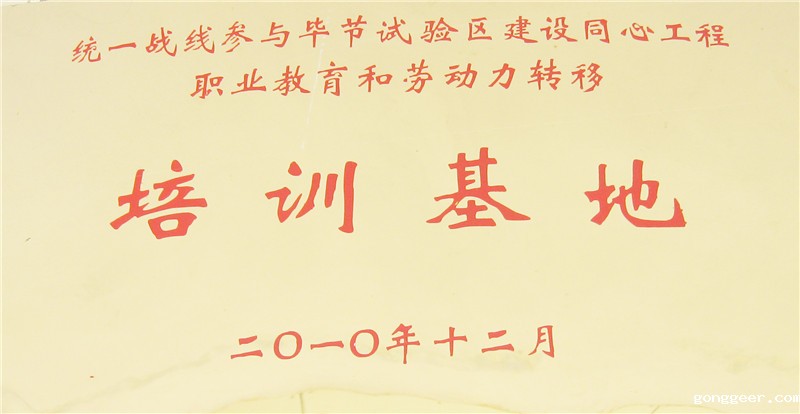 统一战线参与毕节试验区建设同心工程
职业教育和劳动力转移
培训基地
二〇一〇年十二月
gonggeer.com